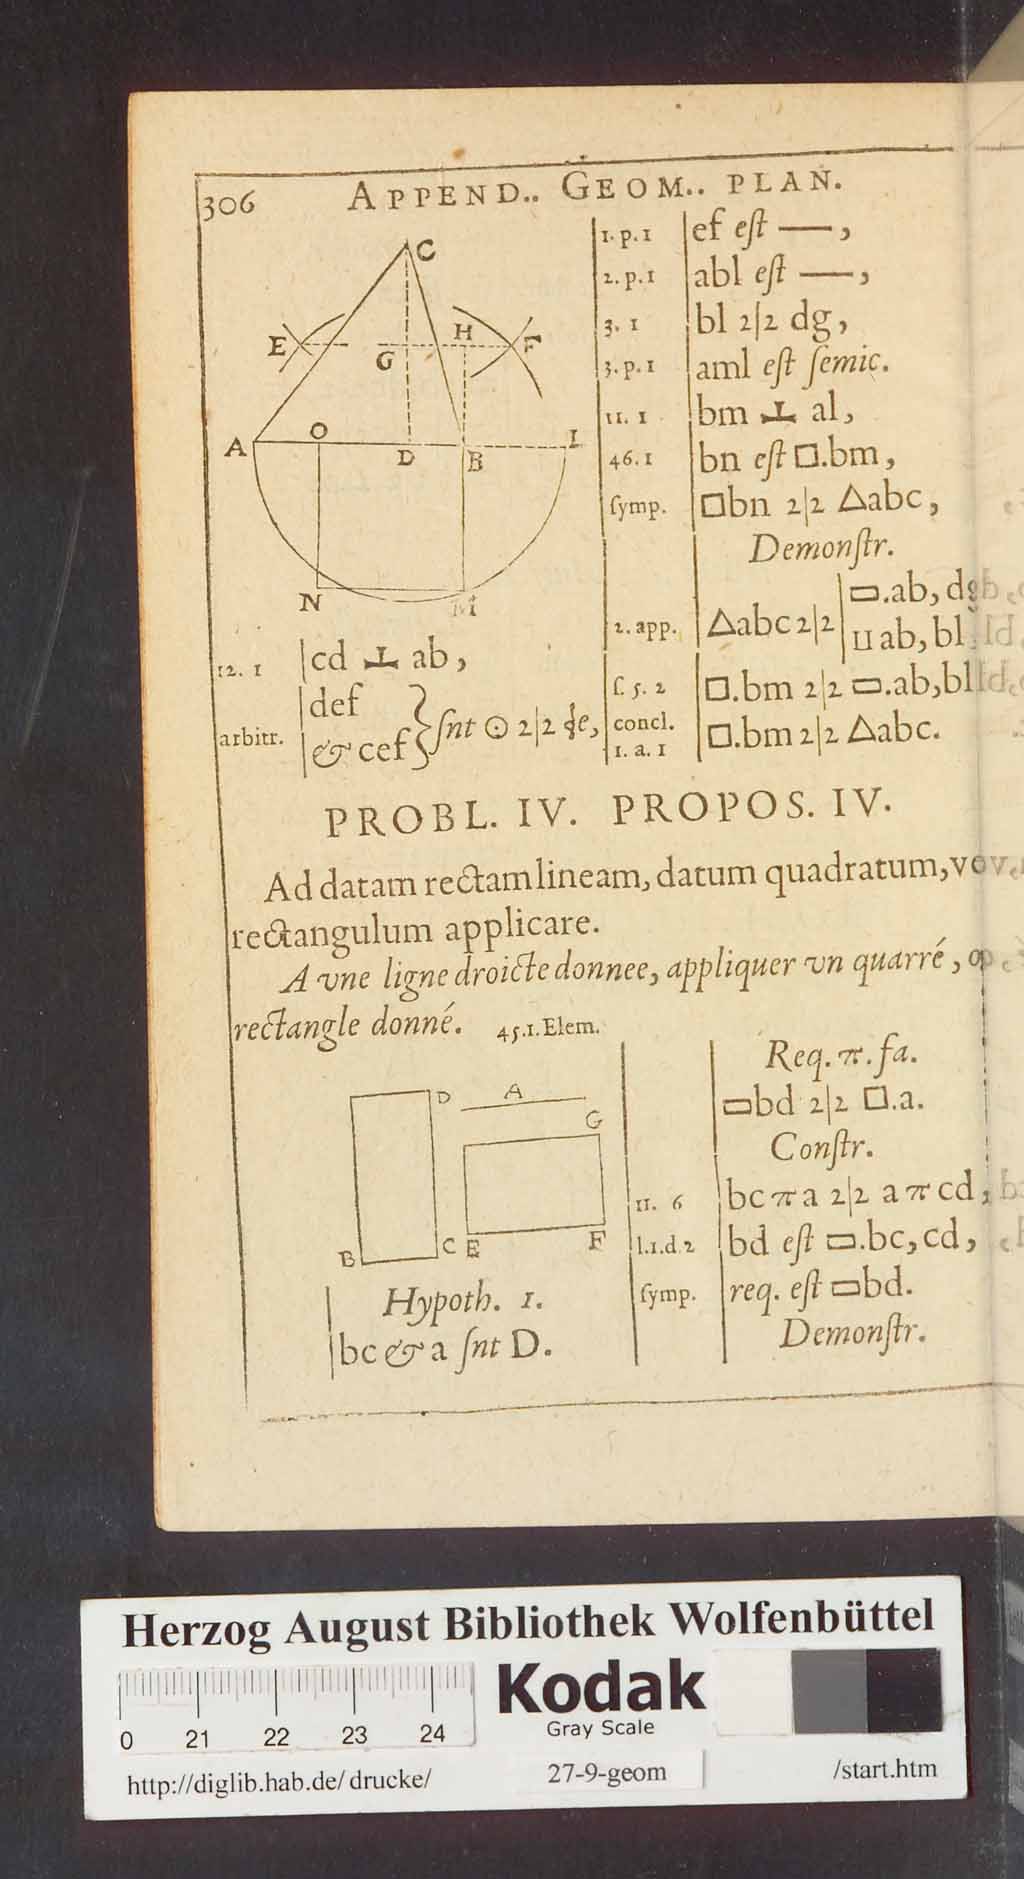 306 APPEND.. GEOM.. PLAN.
C
E G H F
A O D B L
N M
12. 1 cd ⊥ ab,
def
arbitr. & cef } ſnt ⊙ 2|2
1. p. 1 ef eſt —,
2. p. 1 abl eſt —,
3. 1 bl 2|2 dg,
3. p. 1 aml eſt ſemic.
11. 1 bm ⊥ al,
46. 1 bn eſt □.bm,
ſymp. □bn 2|2 △abc,
Demonſtr.
▭.ab, dg
2. app. △abc 2|2
⊔ ab, bl
ſ. 5. 2 □.bm 2|2 ▭.ab, bl
concl.
1. a. 1 □.bm 2|2 △abc.
PROBL. IV. PROPOS. IV.
Ad datam rectam lineam, datum quadratum,
rectangulum applicare.
A vne ligne droicte donnee, appliquer vn quarré,
rectangle donné. 45.1. Elem.
D A G
B C E F
Hypoth. 1.
bc & a ſnt D.
Req. π. fa.
▭bd 2|2 □.a.
Conſtr.
11. 6 bc π a 2|2 a π cd,
l.1.d.2 bd eſt ▭.bc, cd,
ſymp. req. eſt ▭bd.
Demonſtr.
Herzog August Bibliothek Wolfenbüttel
0 21 22 23 24
Kodak
Gray Scale
http://diglib.hab.de/drucke/ 27-9-geom /start.htm